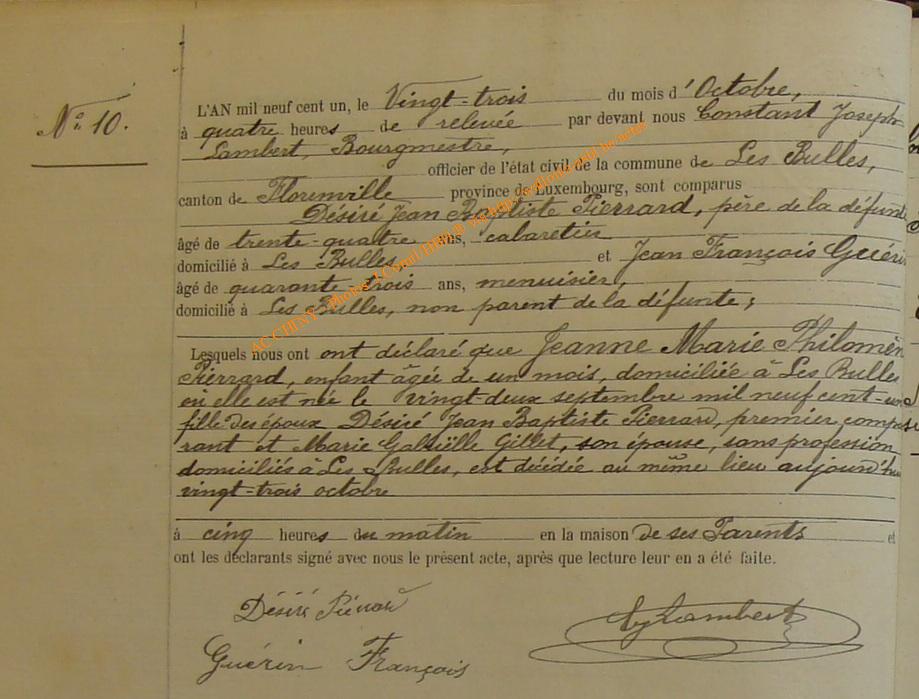 N° 10.
L'AN mil neuf cent un, le Vingt-trois du mois d'Octobre,
à quatre heures de relevée par devant nous Constant Joseph
Lambert, Bourgmestre,
officier de l'état civil de la commune de Les Bulles,
canton de Florenville province de Luxembourg, sont comparus
Désiré Jean Baptiste Pierrard, père de la défunte
âgé de trente-quatre ans, cabaretier
domicilié à Les Bulles et Jean François Guérin
âgé de quarante-trois ans, menuisier,
domicilié à Les Bulles, non parent de la défunte;
Lesquels nous ont ont déclaré que Jeanne Marie Philomèn
Pierrard, enfant âgée de un mois, domiciliée à Les Bulles
où elle est née le vingt-deux septembre mil neuf cent-un
fille des époux Désiré Jean Baptiste Pierrard, premier compa
rant et Marie Gabriëlle Gillet, son épouse, sans profession
domiciliés à Les Bulles, est décédée au même lieu aujourd'hui
vingt-trois octobre
à cinq heures du matin en la maison de ses Parents et
ont les déclarants signé avec nous le présent acte, après que lecture leur en a été faite.
Désiré Piérard
Lambert
Guérin François
AC CHINY - Photos